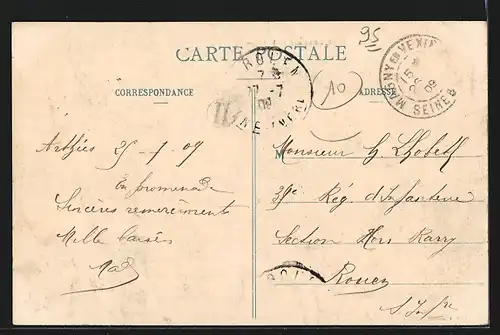 95
CARTE POSTALE
CORRESPONDANCE
ADRESSE
ROUEN
10
MAGNY EN VEXIN
09
Arthies 25-7-09
En promenade
Sincères remerciements
Mille baisers
Monsieur
39e Rég. d'Infanterie
Section Hors Rang
Rouen
S. Infre